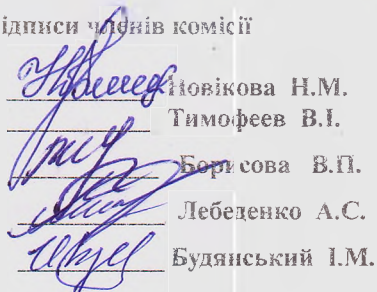 ідписи членів комісії
Новікова Н.М.
Тимофеев В.І.
Борисова В.П.
Лебеденко А.С.
Будянський І.М.